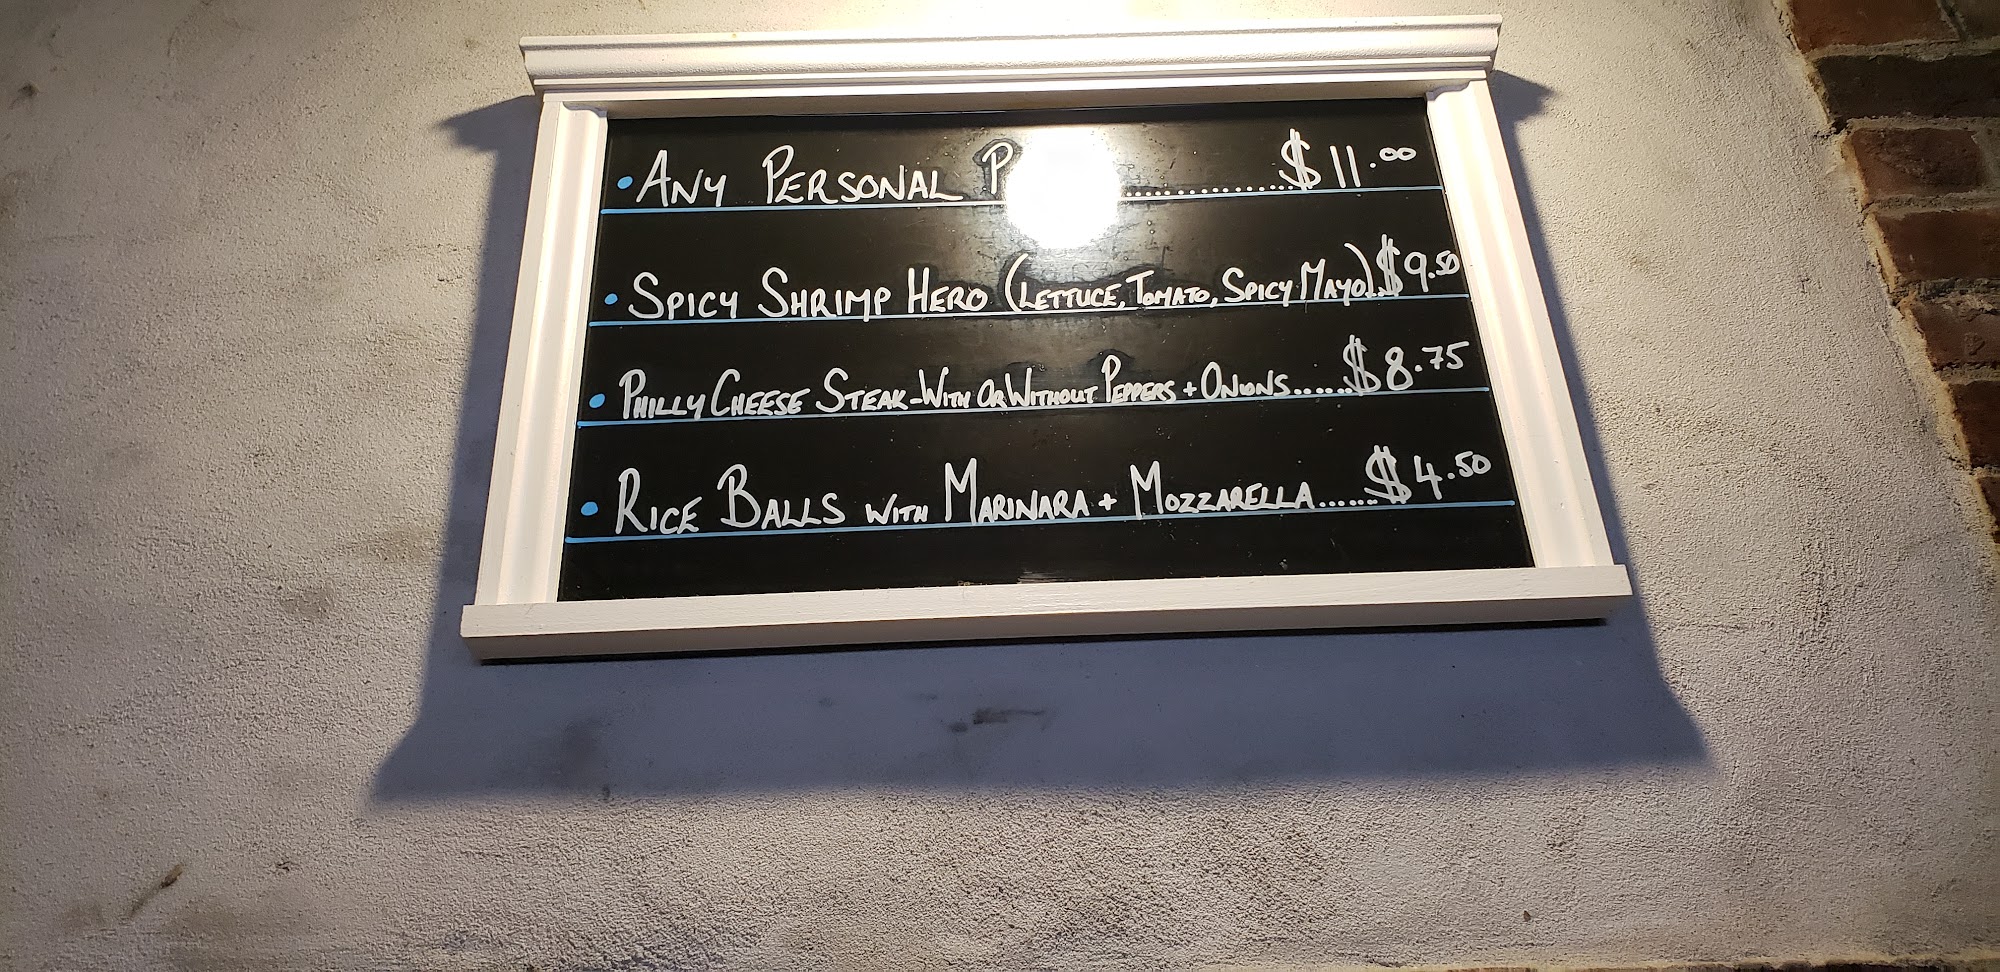 • ANY PERSONAL ............... $11.00
• SPICY SHRIMP HERO (LETTUCE, TOMATO, SPICY MAYO)..$9.50
• PHILLY CHEESE STEAK-WITH OR WITHOUT PEPPERS + ONIONS......$8.75
• RICE BALLS WITH MARINARA + MOZZARELLA......$4.50